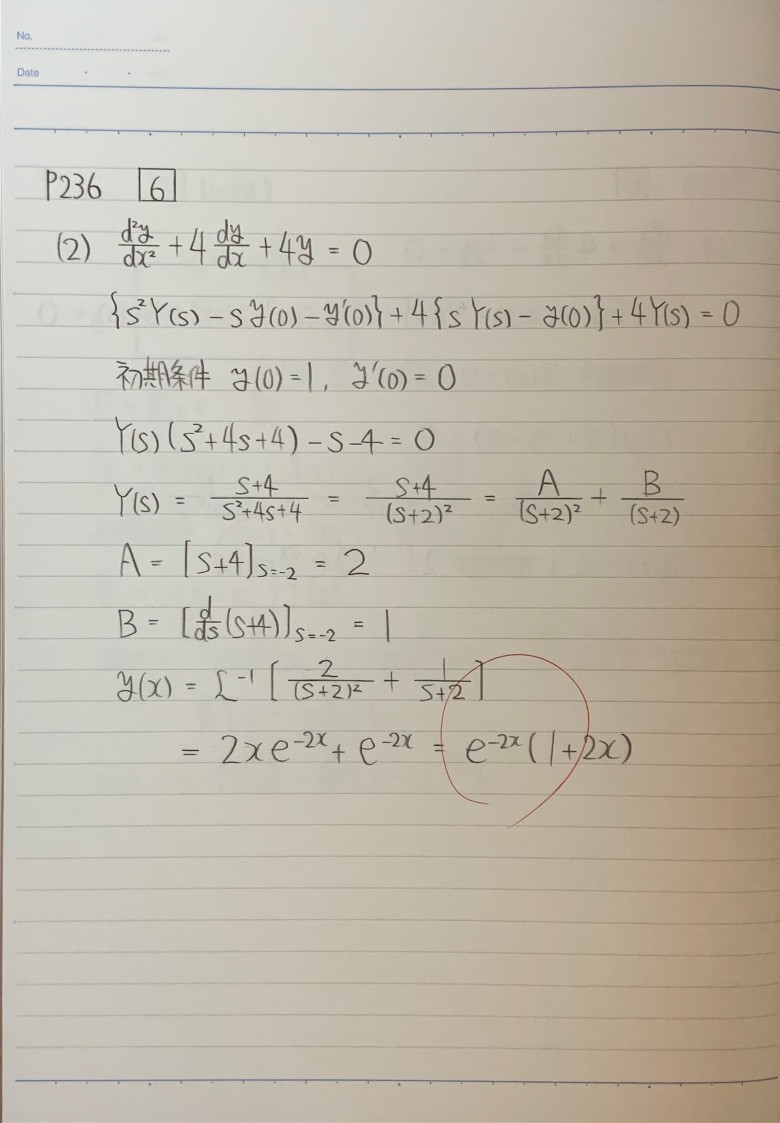 No.
Date
P236 [6]
(2) d²y/dx² + 4 dy/dx + 4y = 0
{s²Y(s) - sy(0) - y'(0)} + 4{sY(s) - y(0)} + 4Y(s) = 0
初期条件 y(0) = 1, y'(0) = 0
Y(s)(s²+4s+4) - s - 4 = 0
Y(s) = (s+4)/(s²+4s+4) = (s+4)/(s+2)² = A/(s+2)² + B/(s+2)
A = [s+4]_{s=-2} = 2
B = [d/ds (s+4)]_{s=-2} = 1
y(x) = L⁻¹ [2/(s+2)² + 1/(s+2)]
= 2xe^{-2x} + e^{-2x} = e^{-2x}(1+2x)